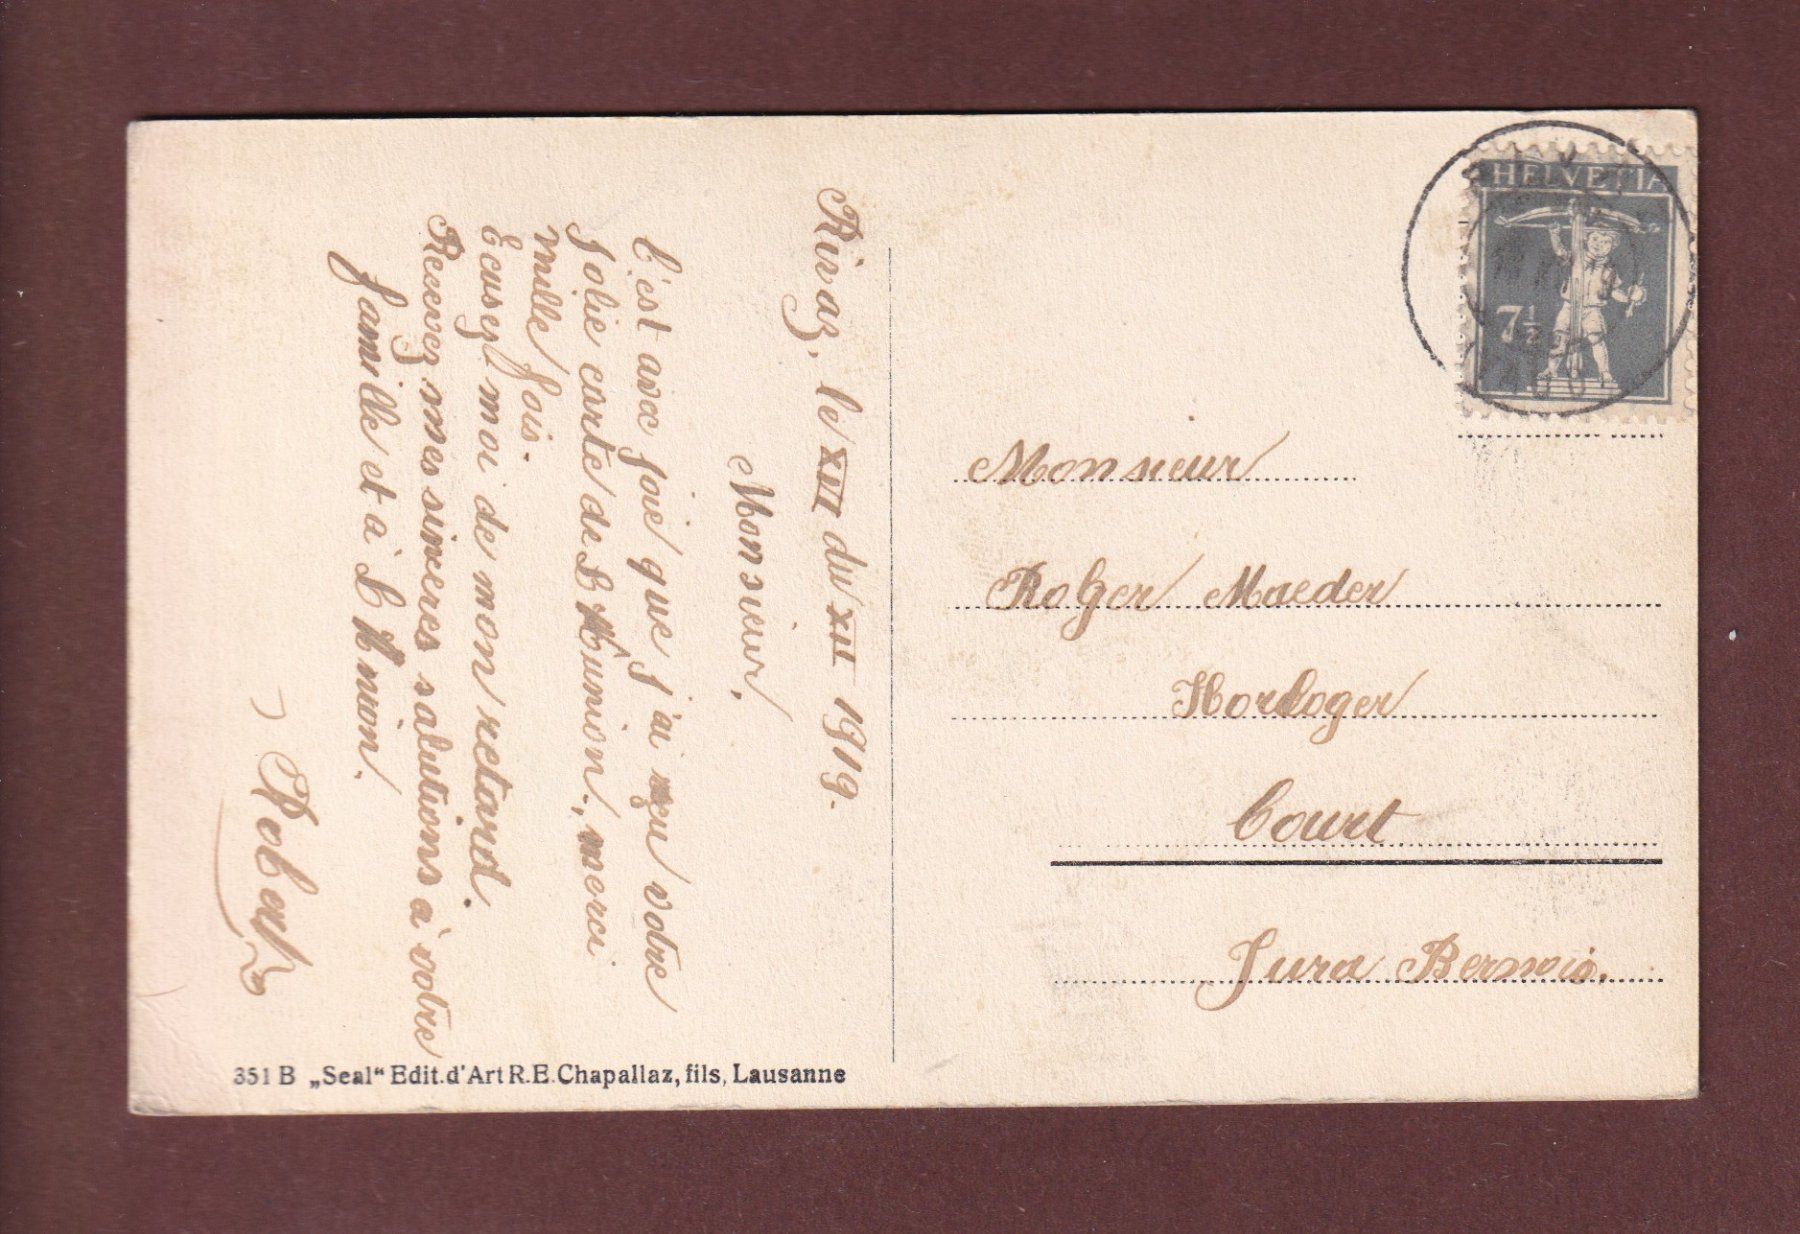 Rivaz, le XVI du XII 1919.
Monsieur.
C'est avec joie que j'ai reçu votre
Jolie carte de L'Union, merci
mille fois.
Ecusez moi de mon retard.
Recevez mes sincères salutions à votre
famille et à L'Union.
Robert
351 B „Seal“ Edit. d'Art R.E. Chapallaz, fils, Lausanne
HELVETIA
7½
Monsieur
Roger Maeder
Horloger
Court
Jura Bernois.